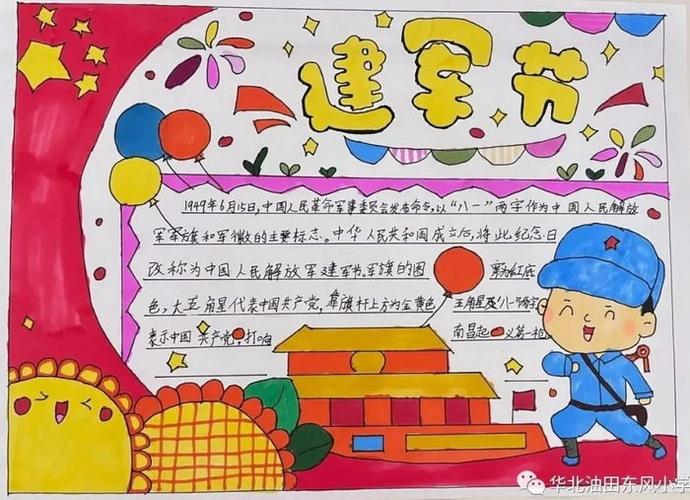 建军节
1949年6月15日,中国人民革命军事委员会发布命令,以“八一”两字作为中国人民解放
军军旗和军徽的主要标志。中华人民共和国成立后,将此纪念日
改称为中国人民解放军建军节。军旗的图案为红底
色,大五角星代表中国共产党,靠旗杆上方为金黄色五角星及“八一”两字
表示中国共产党,打响南昌起义第一枪
华北油田东风小学